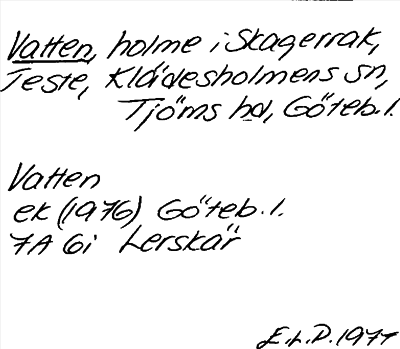 Vatten, holme i Skagerrak,
Teste, Klädesholmens sn,
Tjörns hd, Göteb. l.
Vatten
ek (1976) Göteb. l.
7A 6i Lerskär
E.L.D. 1977